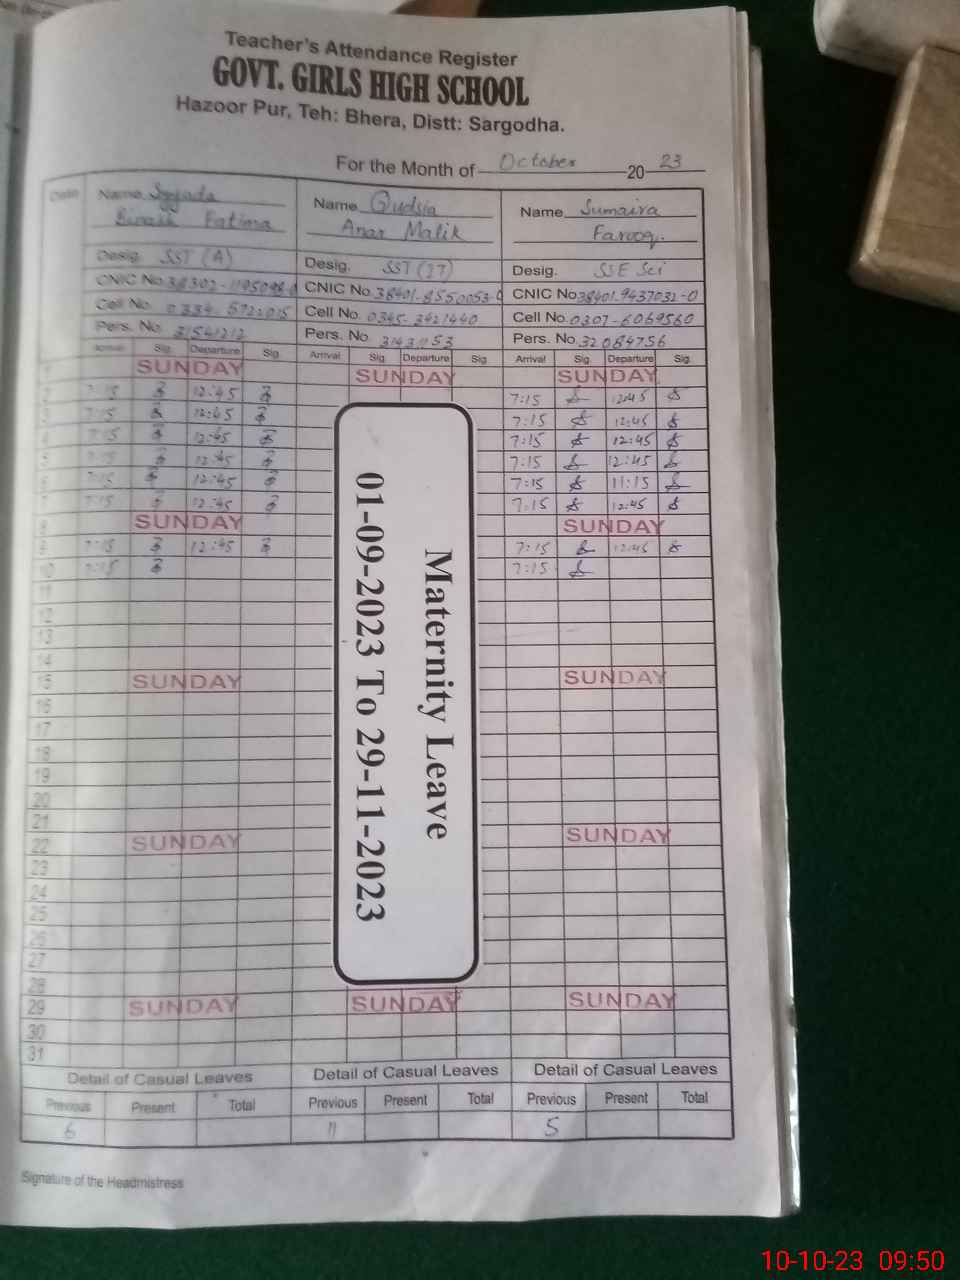 Teacher's Attendance Register
GOVT. GIRLS HIGH SCHOOL
Hazoor Pur, Teh: Bhera, Distt: Sargodha.
For the Month of October 20 23
Date Name Syyada Name Qudsia Name Sumaira
Fatima Anar Malik Farooq.
Desig. SST (A) Desig. SST (IT) Desig. SSE Sci
CNIC No. CNIC No. 38401-8550053- CNIC No 38401-9437032-0
Cell No. Cell No. 0345-3421440 Cell No. 0307-6069560
Pers. No. 31541212 Pers. No. Pers. No. 32084756
Arrival Sig. Departure Sig. Arrival Sig Departure Sig. Arrival Sig. Departure Sig.
1 SUNDAY SUNDAY SUNDAY
2 7:15 12:45 7:15 12:45
3 7:15 12:45 7:15 12:45
4 7:15 12:45 7:15 12:45
5 7:15 12:45 7:15 12:45
6 7:15 12:45 7:15 11:15
7 7:15 12:45 7:15 12:45
8 SUNDAY SUNDAY
9 7:15 12:45 7:15 12:45
10 7:15 7:15
11
12
13
14
15 SUNDAY SUNDAY
16
17
18
19
20
21
22 SUNDAY SUNDAY
23
24
25
26
27
28
29 SUNDAY SUNDAY SUNDAY
30
31
Maternity Leave
01-09-2023 To 29-11-2023
Detail of Casual Leaves Detail of Casual Leaves Detail of Casual Leaves
Previous Present Total Previous Present Total Previous Present Total
6 11 5
Signature of the Headmistress
10-10-23 09:50